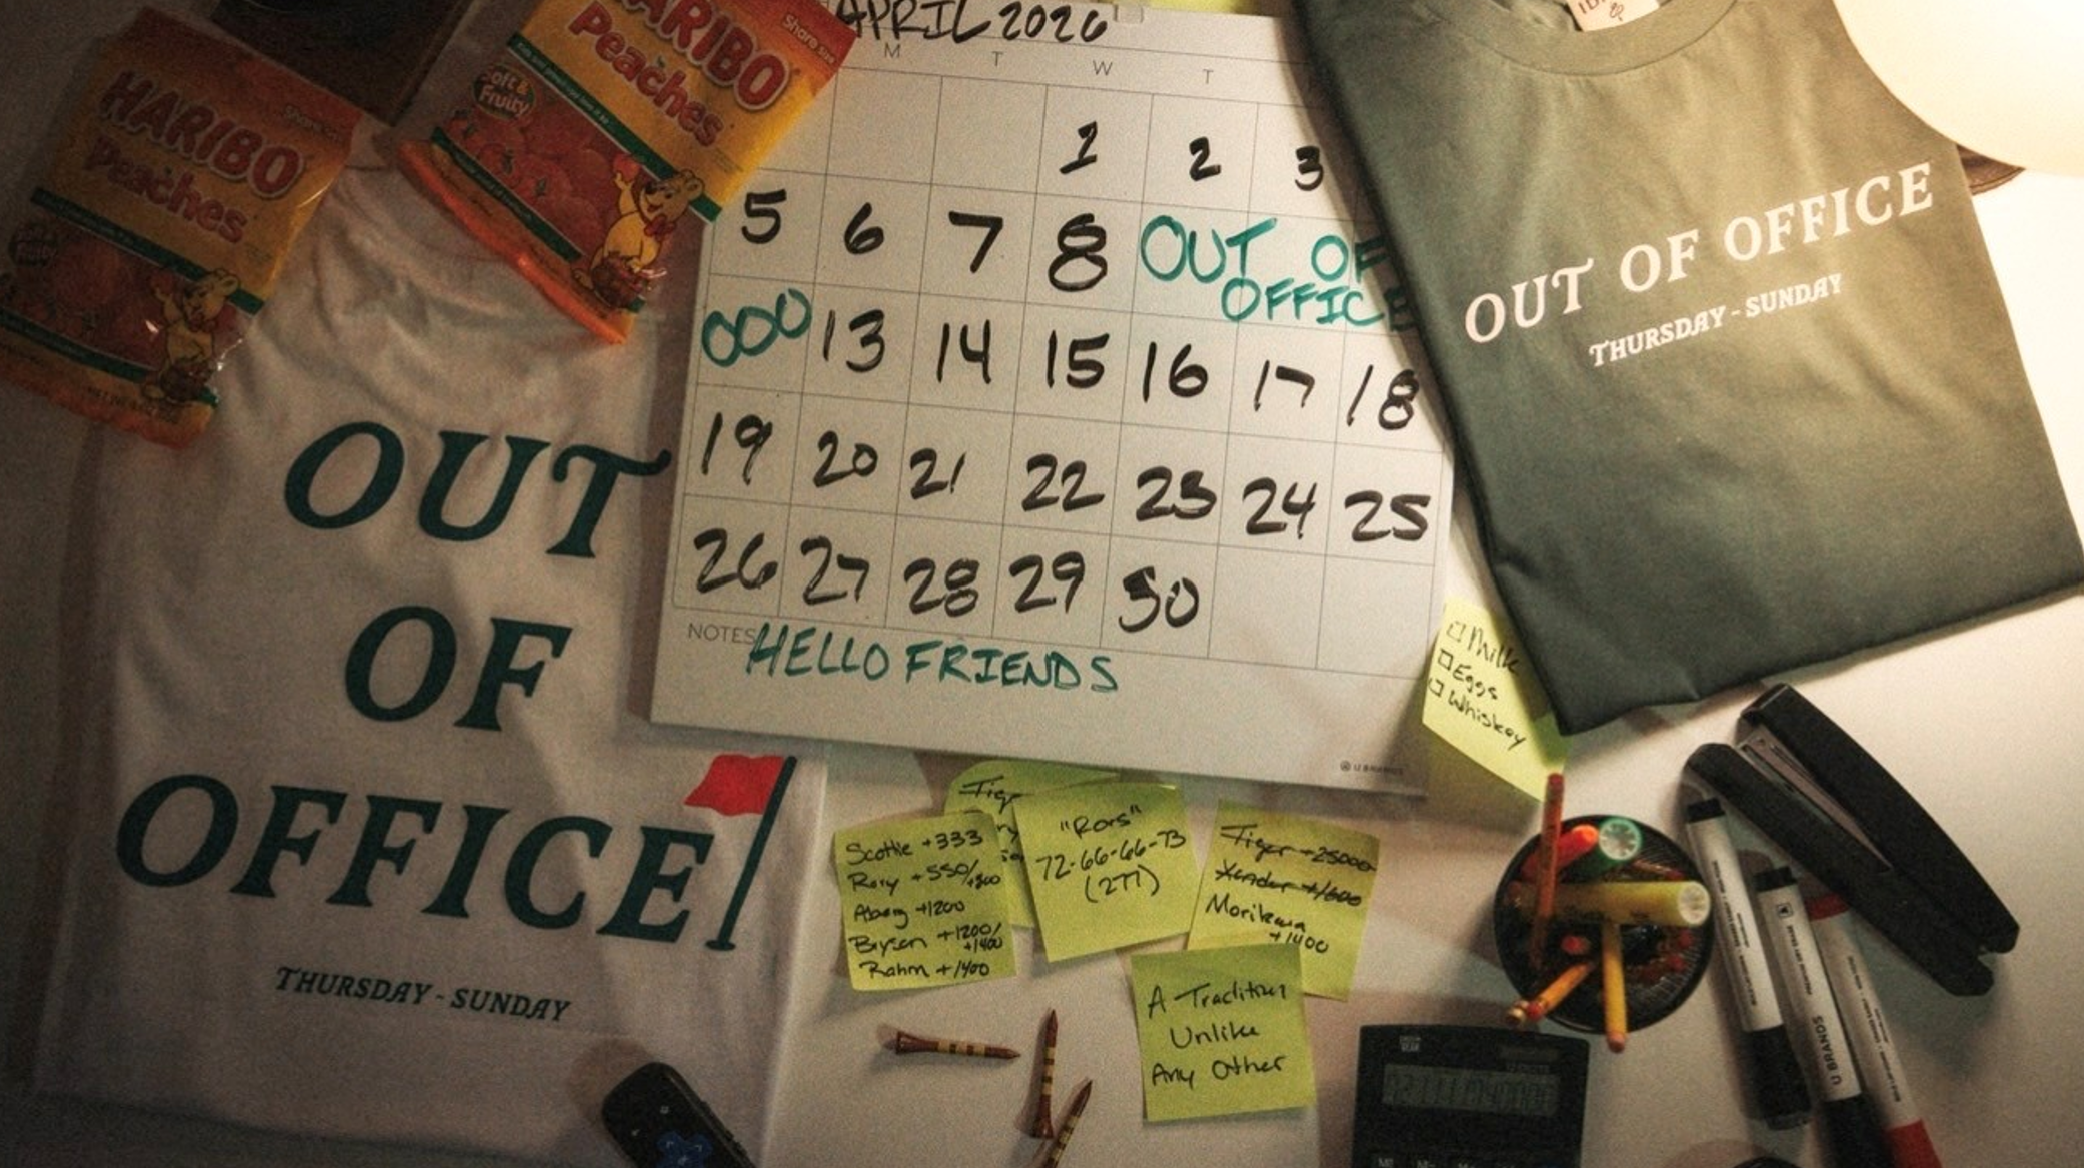 HARIBO
Peaches
HARIBO
Peaches
Share size
Soft &
Fruity
APRIL 2026
M T W T
1 2 3
5 6 7 8 OUT OF
OFFICE
OOO 13 14 15 16 17 18
19 20 21 22 23 24 25
26 27 28 29 30
NOTES HELLO FRIENDS
U BRANDS
OUT OF OFFICE
THURSDAY - SUNDAY
OUT
OF
OFFICE
THURSDAY - SUNDAY
Milk
Eggs
Whiskey
Scottie +333
Rory +550/
+800
Aberg +1200
Bryson +1200/
+1400
Rahm +1400
"Rors"
72-66-66-73
(277)
Tiger +25000
Xander +1600
Morikawa
+1400
A Tradition
Unlike
Any Other
U BRANDS